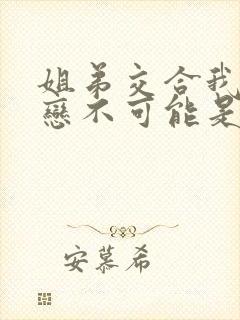 姐弟交合我
戀不可能是
安慕希